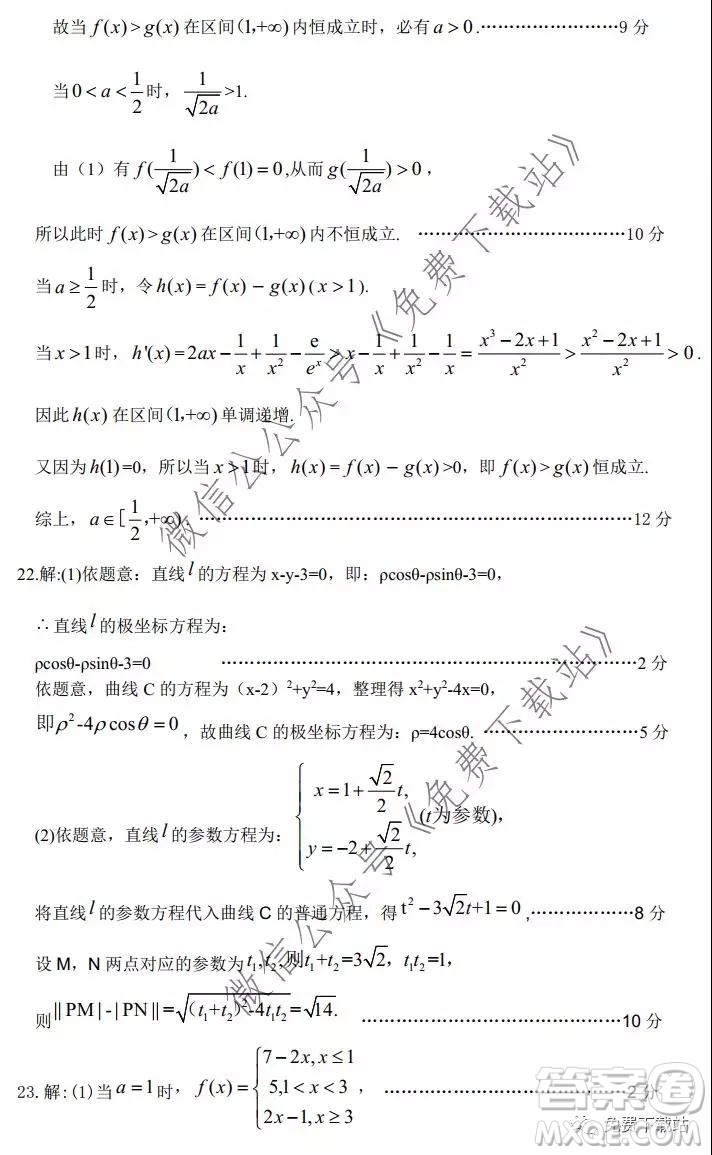 故当 f(x)>g(x) 在区间(1,+∞) 内恒成立时，必有 a>0.……………………9 分
当0<a<1/2时，1/√(2a)>1.
由（1）有 f(1/√(2a))<f(1)=0,从而 g(1/√(2a))>0，
所以此时 f(x)>g(x) 在区间(1,+∞) 内不恒成立. ……………………………10 分
当 a≥1/2 时，令 h(x)=f(x)-g(x)(x>1).
当 x>1时，h'(x)=2ax-1/x+1/x²-e/eˣ>x-1/x+1/x²-1/x=(x³-2x+1)/x²>(x²-2x+1)/x²>0.
因此 h(x) 在区间(1,+∞) 单调递增.
又因为 h(1)=0，所以当 x>1时，h(x)=f(x)-g(x)>0，即 f(x)>g(x) 恒成立.
综上，a∈[1/2,+∞). ……………………………………………………12 分
22.解:(1)依题意：直线 l 的方程为 x-y-3=0，即：ρcosθ-ρsinθ-3=0，
∴直线 l 的极坐标方程为：
ρcosθ-ρsinθ-3=0 ……………………………………………………2 分
依题意，曲线 C 的方程为（x-2）²+y²=4，整理得 x²+y²-4x=0，
即ρ²-4ρcosθ=0，故曲线 C 的极坐标方程为：ρ=4cosθ. …………………5 分
(2)依题意，直线 l 的参数方程为：{x=1+(√2/2)t, y=-2+(√2/2)t, (t为参数)，
将直线 l 的参数方程代入曲线 C 的普通方程，得 t²-3√2t+1=0，………………8 分
设 M，N 两点对应的参数为 t₁,t₂,则t₁+t₂=3√2，t₁t₂=1,
则||PM|-|PN||=√((t₁+t₂)²-4t₁t₂)=√14. ………………………………10 分
23.解:(1)当 a=1时，f(x)={7-2x,x≤1 5,1<x<3 2x-1,x≥3，……………………………2 分
微信公众号《免费下载站》
微信公众号《免费下载站》
答案卷
免费下载站
MXQE.COM